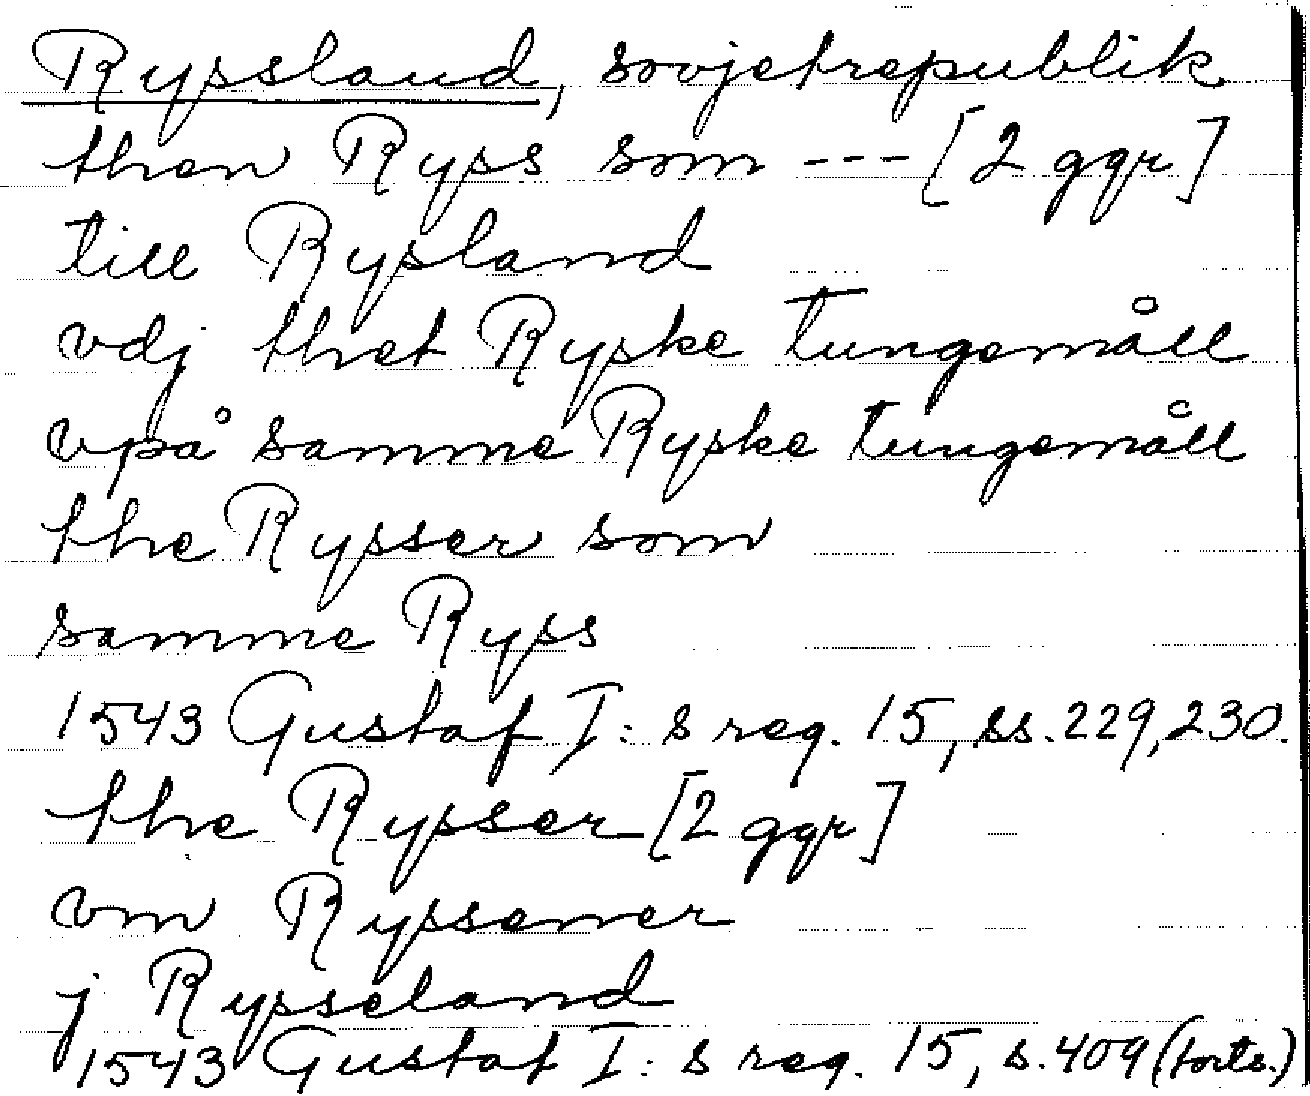 Ryssland, sovjetrepublik
then Ryss som --- [2 ggr]
till Rysland
vdj thet Ryske tungemåll
vpå samme Ryske tungemåll
the Rysser som
samme Ryss
1543 Gustaf I:s reg. 15, ss. 229, 230.
the Rysser [2 ggr]
vm Rysserner
j Rysseland
1543 Gustaf I:s reg. 15, s. 409 (forts.)